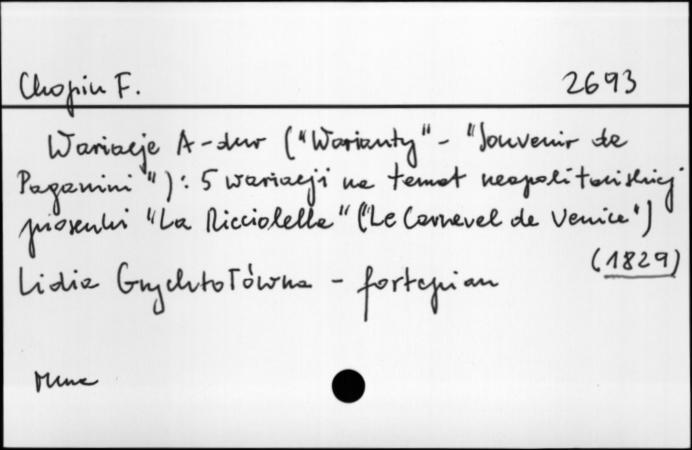 Chopin F. 2693
Wariacje A-dur ("Warianty" - "Souvenir de
Paganini"): 5 wariacji na temat neapolitańskiej
piosenki "La Ricciolella" ("Le Carnevel de Venice")
(1829)
Lidia Grychtołówna - fortepian
Muza